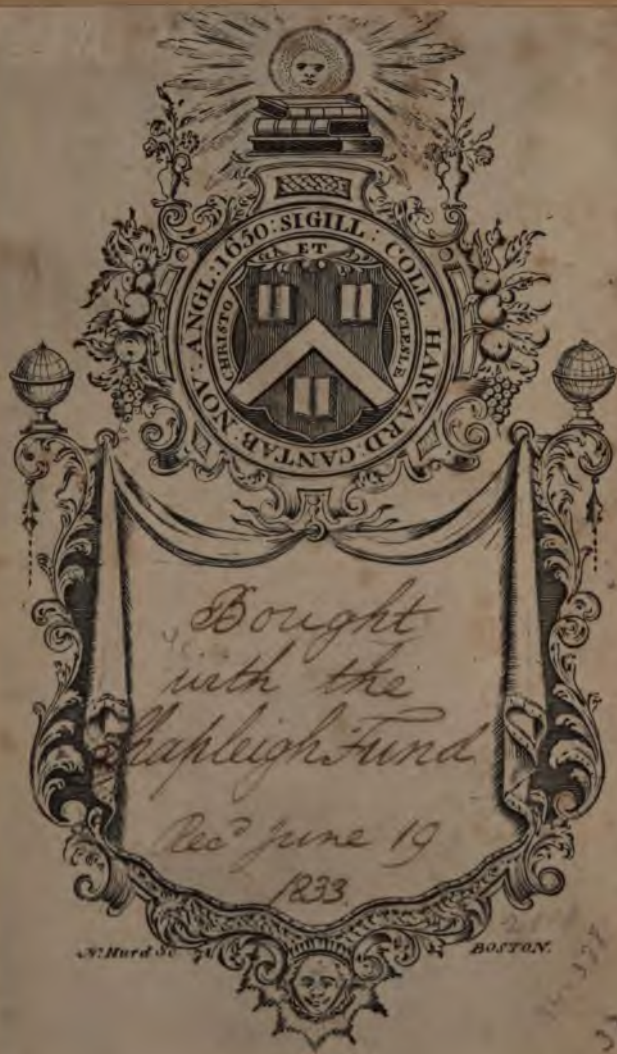 SIGILL : COLL HARVARD CANTAB : NOV : ANGL : 1650 :
CHRISTO ET ECCLESIÆ
Bought
with the
Shapleigh Fund
Recd June 19
1833.
N. Hurd Sc
BOSTON.